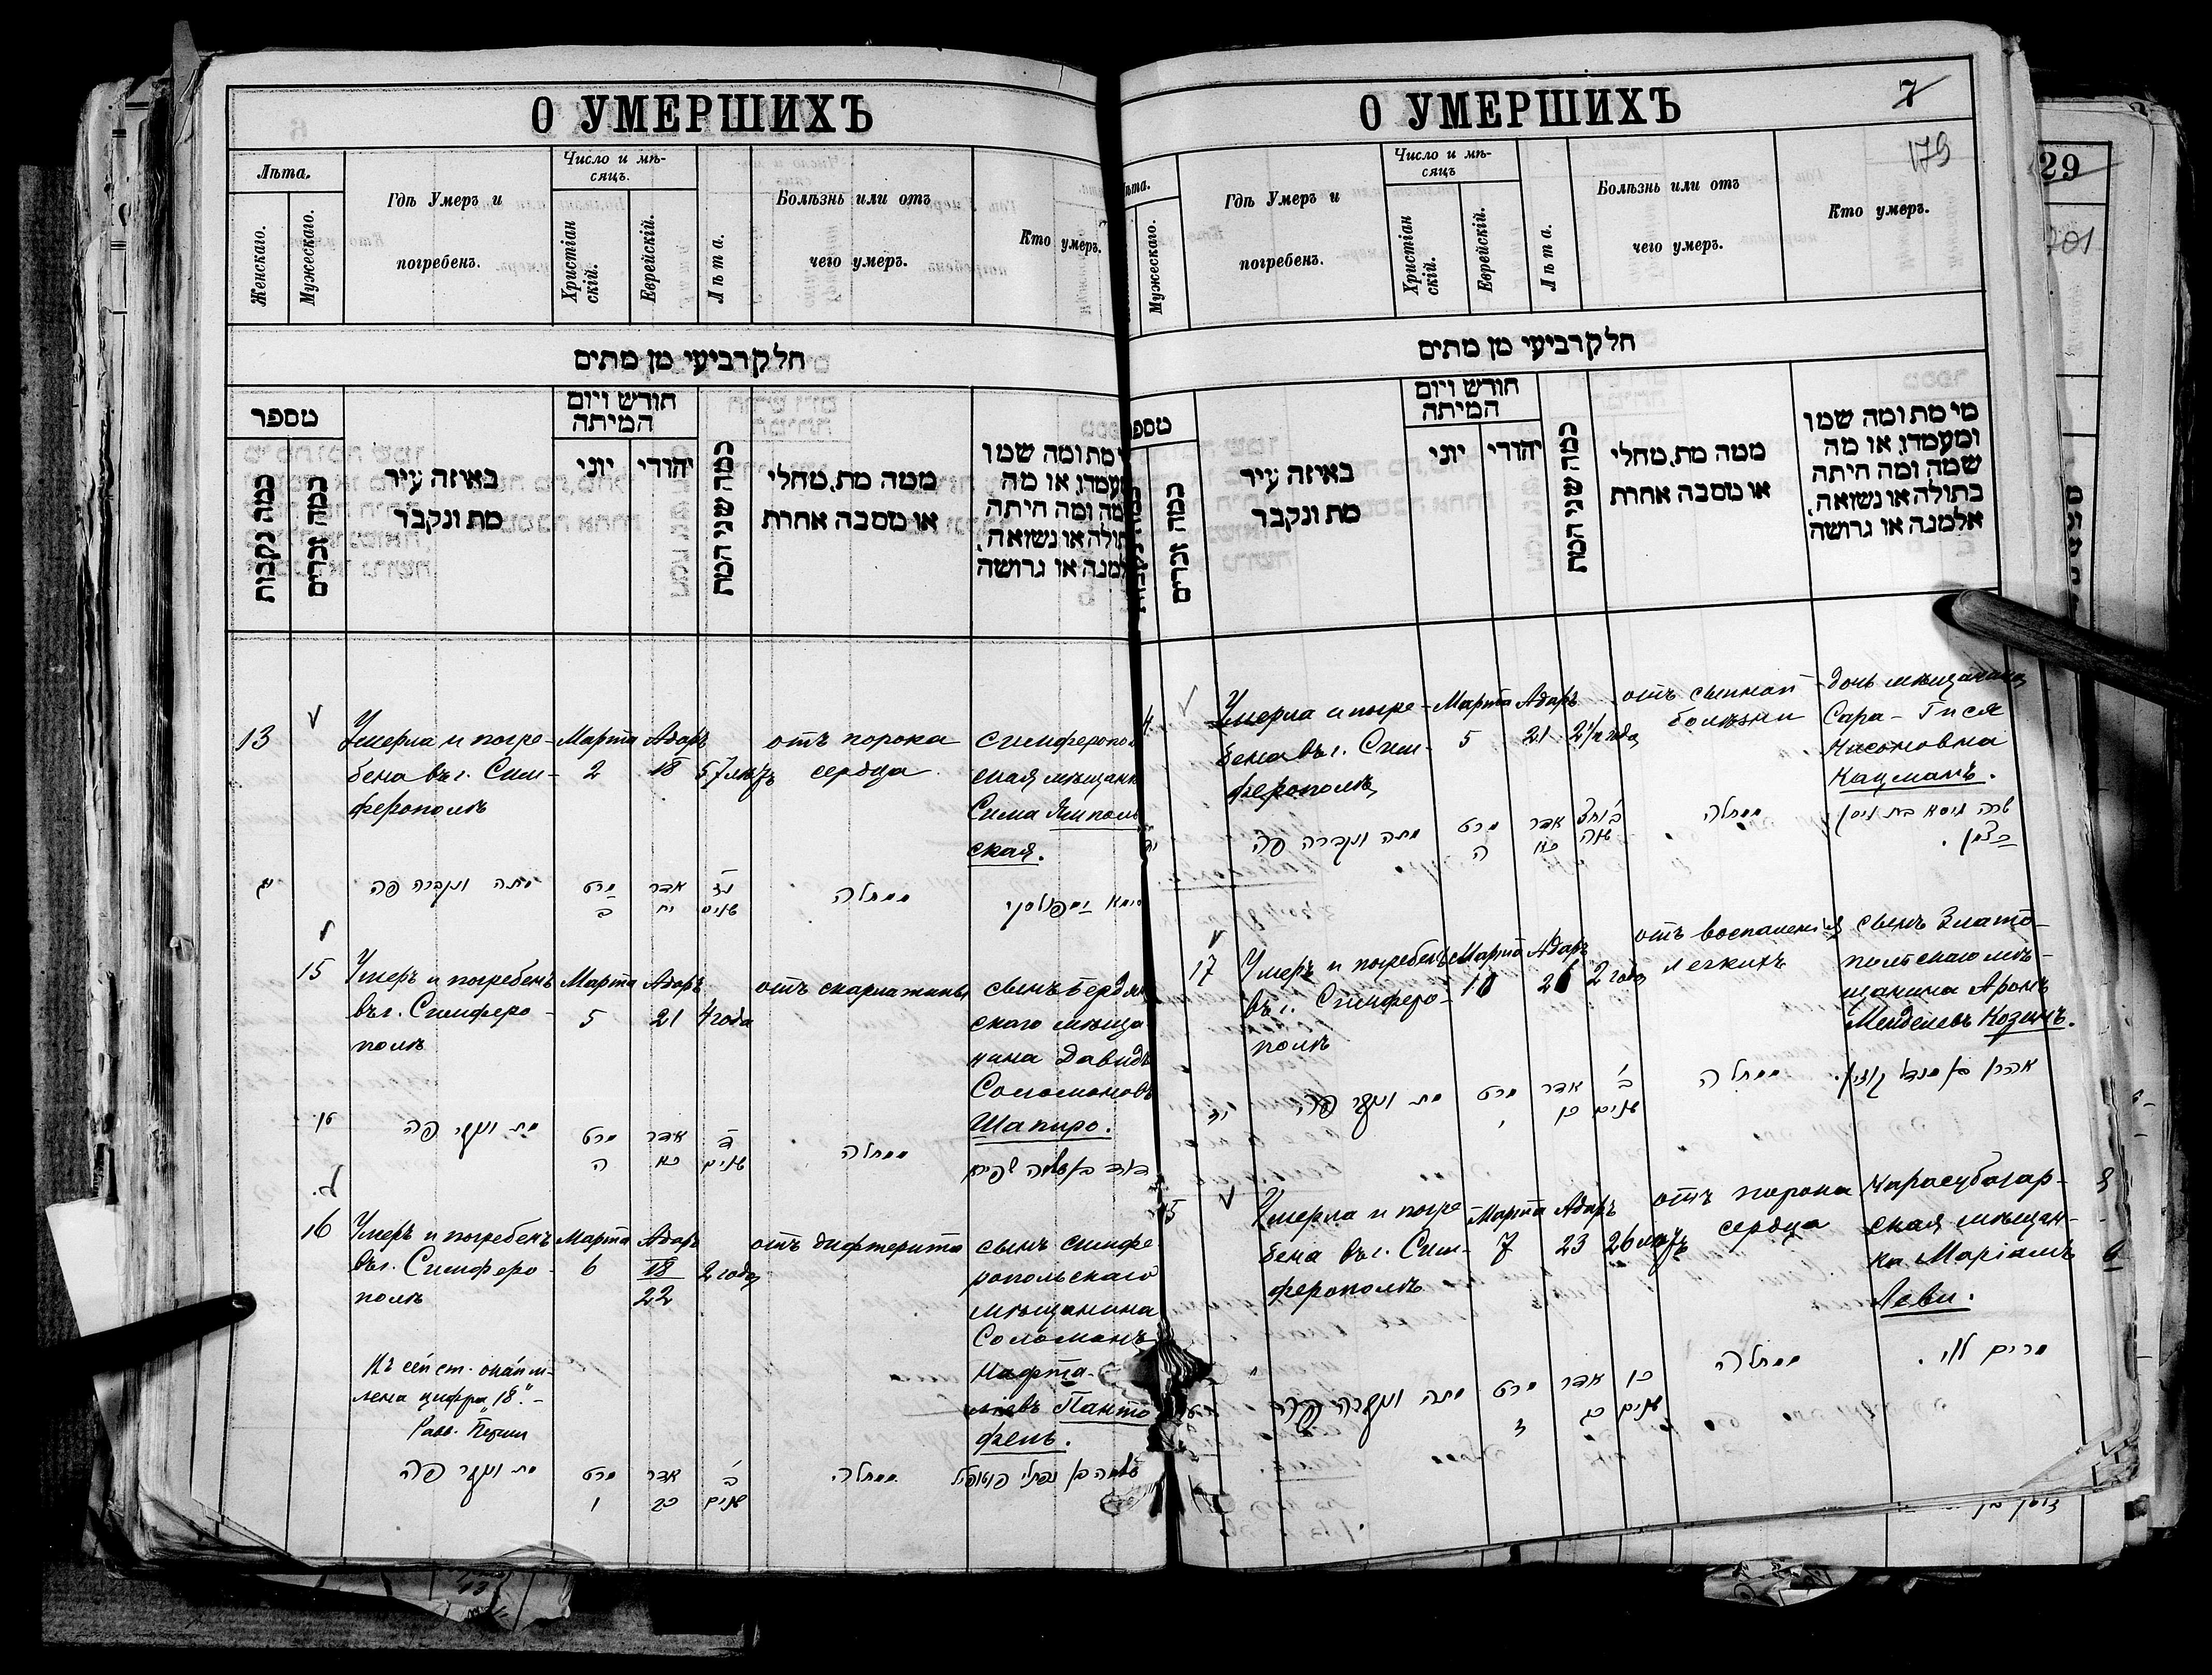 О УМЕРШИХЪ
Лѣта.
Женскаго.
Мужескаго.
Гдѣ Умеръ и
погребенъ.
Число и мѣ-
сяцъ.
Христіан
скій.
Еврейскій.
Лѣта.
Болѣзнь или отъ
чего умеръ.
Кто умеръ.
חלק רביעי מן מתים
מספר
כמה נקבות
כמה זכרים
באיזה עיר
מת ונקבר
חודש ויום
המיתה
יוני
יהודי
כמה שני המת
ממה מת, מחלי
או מסבה אחרת
מת ומה שמו
או מה
ומה היתה
או נשואה,
או גרושה
13
Умерла и погре-
бена въ г. Сим-
ферополѣ
Марта
2
Адаръ
18
57 лѣтъ
отъ порока
сердца
симферопол
ская мѣщанк
Сима Ямполь
ская.
מתה ונקברה פה
מרט
ב
אדר
יח
נז
שנים
ממחלה
15
Умеръ и погребенъ
въ г. Симферо-
полѣ
Марта
5
Адаръ
21
4 года
отъ скарлатины
сынъ Бердян
скаго мѣща
нина Давидъ
Соломоновъ
Шапиро.
מת ונקבר פה
מרט
ה
אדר
כא
ד
שנים
ממחלה
דוד בן שלמה שפירא
16
Умеръ и погребенъ
въ г. Симферо-
полѣ
Марта
6
Адаръ
18
22
2 года
отъ дифтерита
сынъ симфе
ропольскаго
мѣщанина
Соломонъ
Нафта-
ліевъ Панто
фель.
Въ сей ст.
цифра "18". –
Равв.
מת ונקבר פה
מרט
ו
אדר
כב
ב
שנים
ממחלה
שלמה בן נפתלי פנטופיל
О УМЕРШИХЪ
7
179
Мужескаго.
Гдѣ Умеръ и
погребенъ.
Число и мѣ-
сяцъ
Христіан
скій.
Еврейскій.
Лѣта.
Болѣзнь или отъ
чего умеръ.
Кто умеръ.
חלק רביעי מן מתים
כמה זכרים
באיזה עיר
מת ונקבר
חודש ויום
המיתה
יוני
יהודי
כמה שני המת
ממה מת, מחלי
או מסבה אחרת
מי מת ומה שמו
ומעמדו, או מה
שמה ומה היתה
בתולה או נשואה,
אלמנה או גרושה
4
Умерла и погре-
бена въ г. Сим-
ферополѣ
Марта
5
Адаръ
21
2½ года
отъ сыпной
болѣзни
дочь мѣщанина
Сара-Гися
Нисоновна
Кацманъ.
מתה ונקברה פה
מרט
ה
אדר
כא
שנה
ממחלה
שרה גיסא בת ניסן
כצמן.
17
Умеръ и погребенъ
въ г. Симферо-
полѣ
Марта
10
Адаръ
26
2 года
отъ воспаленія
легкихъ
сынъ Злато-
польскаго мѣ-
щанина Аронъ
Менделевъ Козинъ.
מת ונקבר פה
מרט
י
אדר
כו
ב
שנים
ממחלה
אהרן בן מנדל קוזין.
5
Умерла и погре
бена въ г. Сим-
ферополѣ
Марта
7
Адаръ
23
26 лѣтъ
отъ порока
сердца
Карасубазар-
ская мѣщан-
ка Маріамъ
Леви.
מתה ונקברה פה
מרט
ז
אדר
כג
כו
שנים
ממחלה
מרים לוי.
29
701